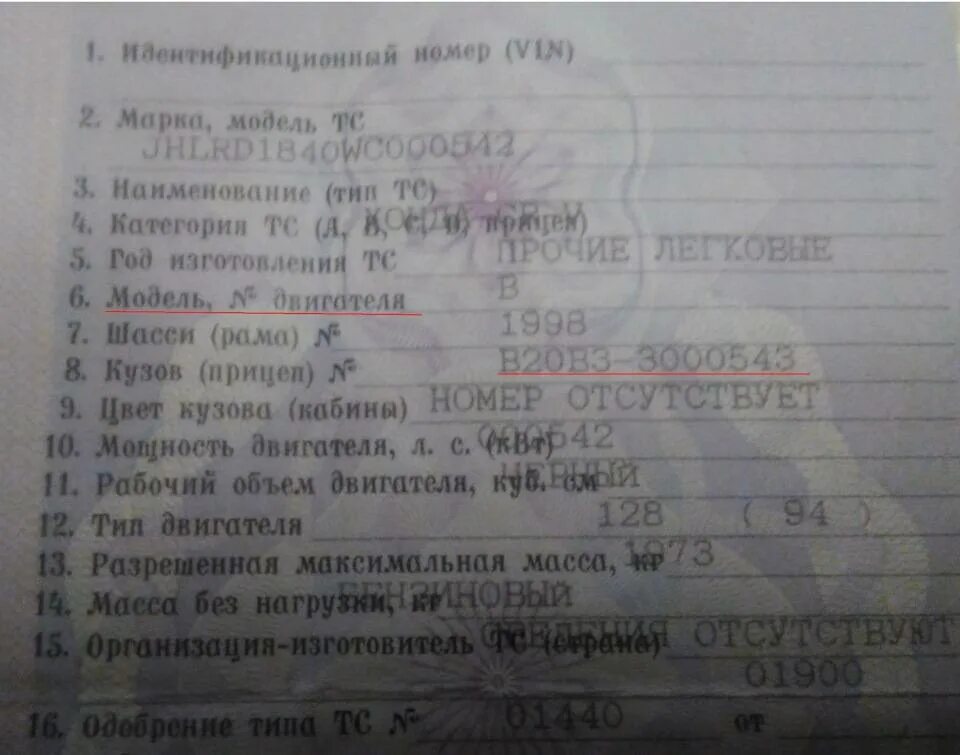 1. Идентификационный номер (VIN)
2. Марка, модель ТС
JHLRD1840WC000542
3. Наименование (тип ТС)
ХОНДА CR-V
4. Категория ТС (А, В, С, D, прицеп)
ПРОЧИЕ ЛЕГКОВЫЕ
5. Год изготовления ТС
В
6. Модель, № двигателя
1998
7. Шасси (рама) №
B20B3-3000543
8. Кузов (прицеп) №
НОМЕР ОТСУТСТВУЕТ
9. Цвет кузова (кабины)
000542
10. Мощность двигателя, л. с. (кВт)
ЧЕРНЫЙ
11. Рабочий объем двигателя, куб. см
128 ( 94 )
12. Тип двигателя
1973
13. Разрешенная максимальная масса, кг
БЕНЗИНОВЫЙ
14. Масса без нагрузки, кг
СВЕДЕНИЯ ОТСУТСТВУЮТ
15. Организация-изготовитель ТС (страна)
01900
01440
16. Одобрение типа ТС № от